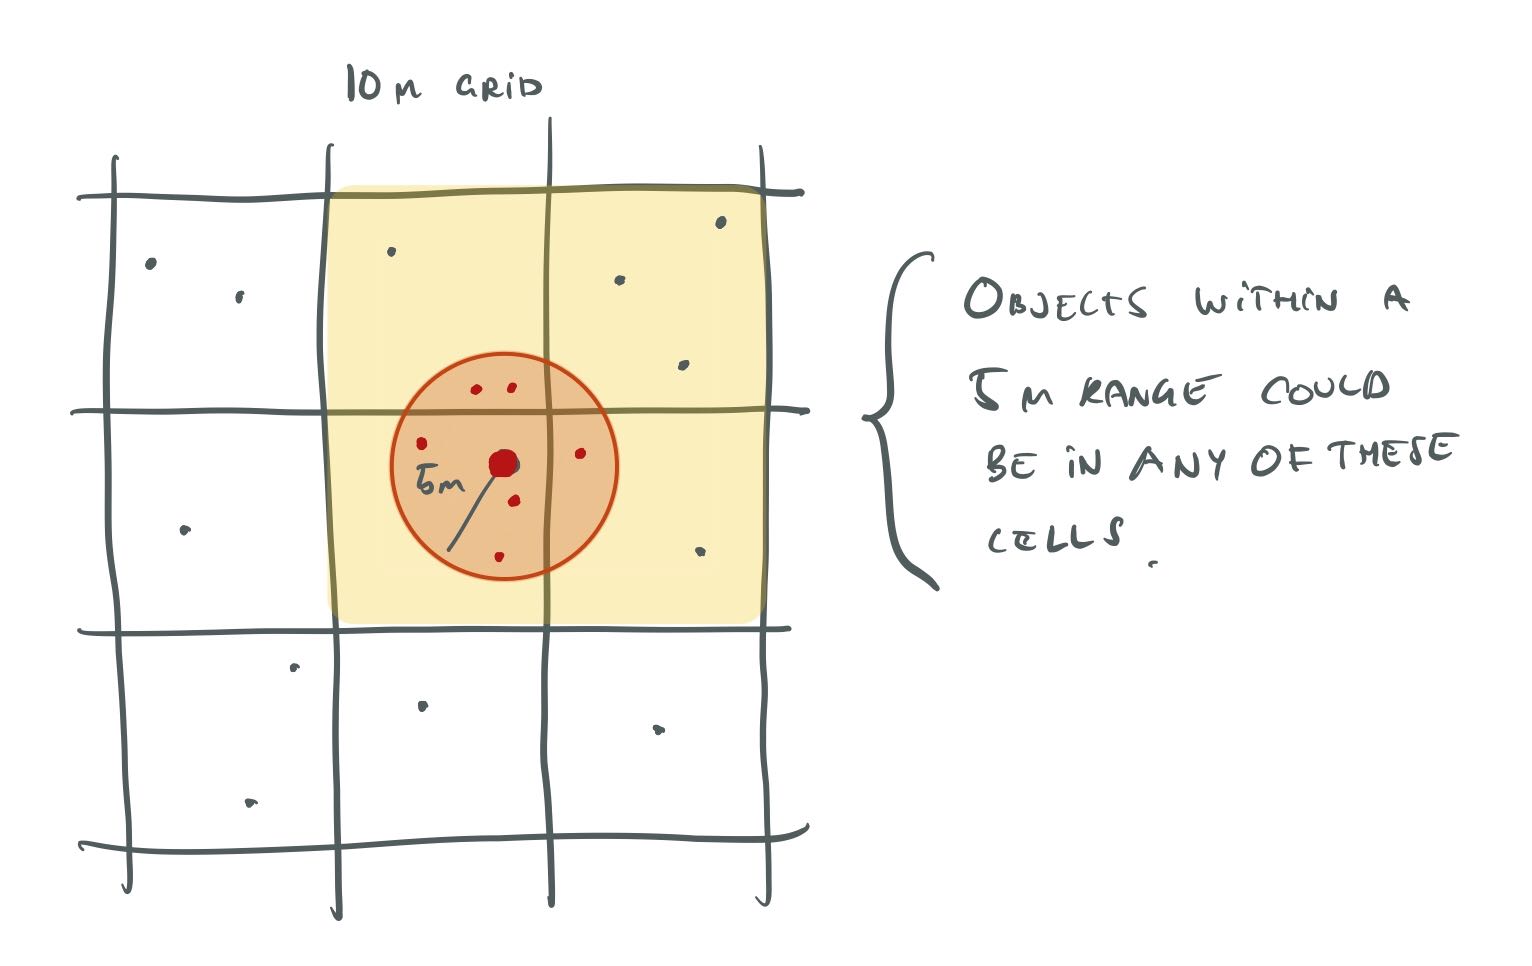 10m GRiD
5m
OBJECTS WiTHiN A
5m RANGE COULD
BE iN ANY OF THESE
CELLS.